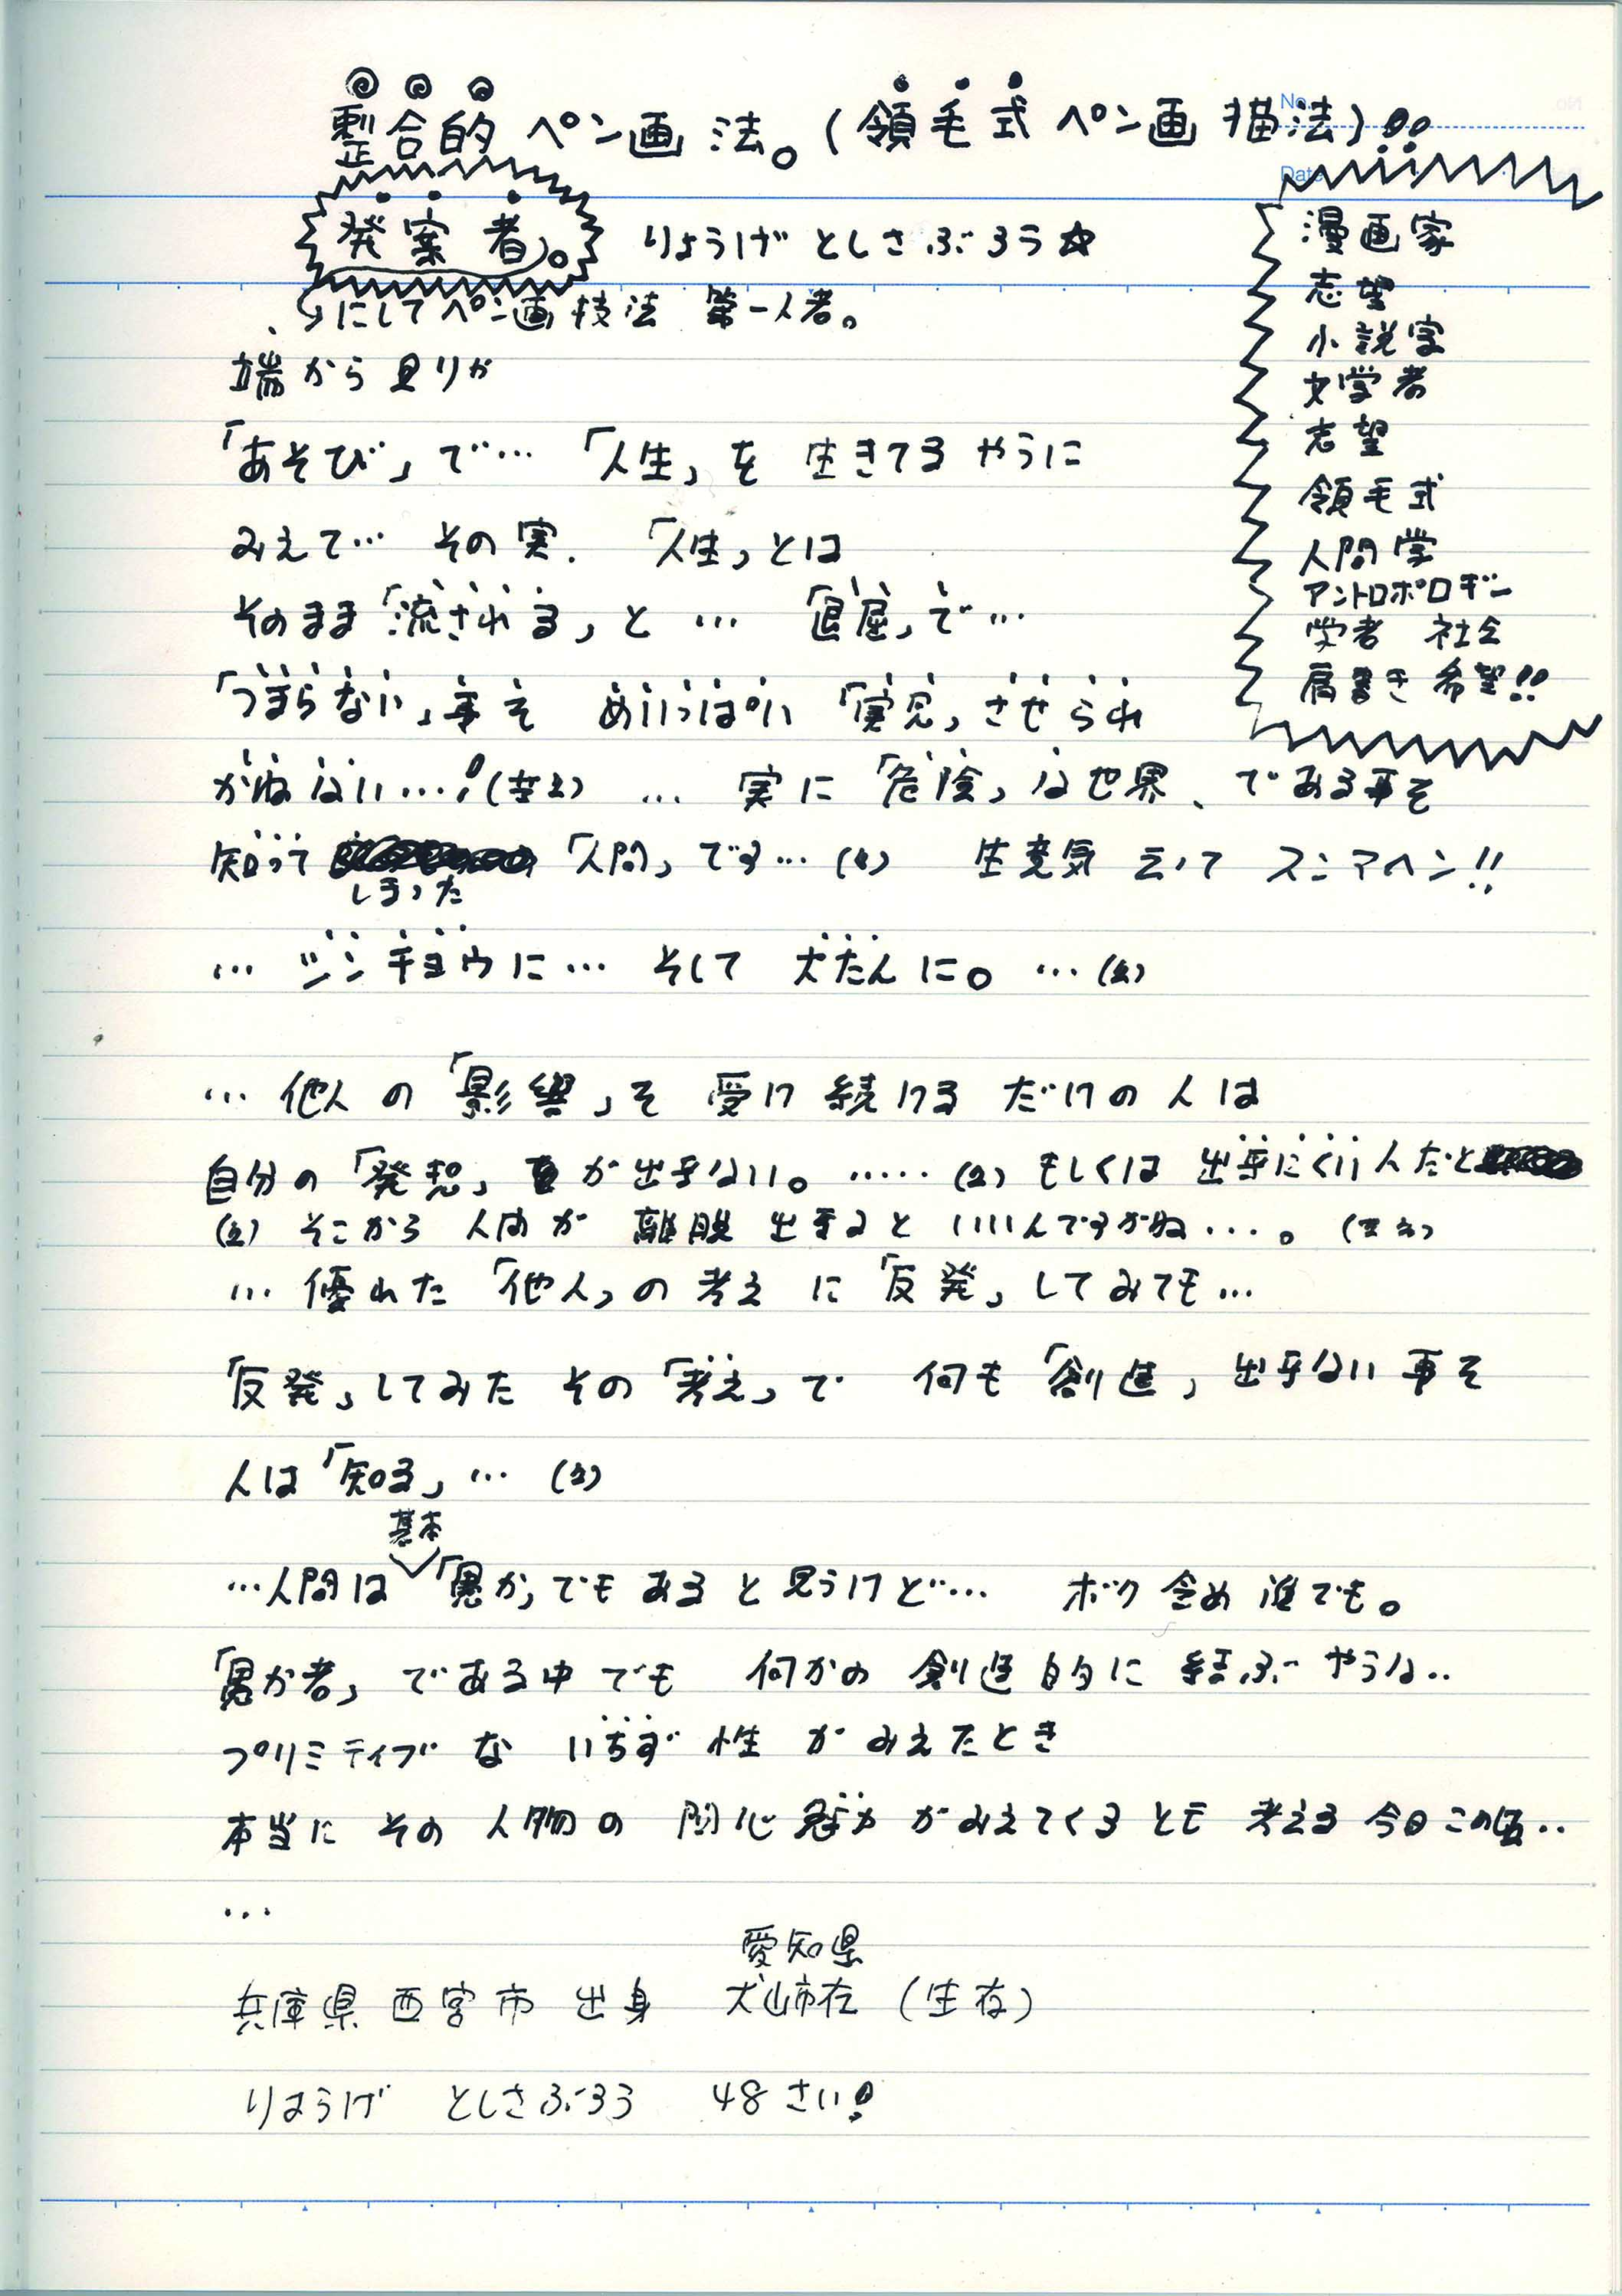 整合的 ペン画 法。(領毛式 ペン画 描法)!!
No.
Date
発案者。 りょうげ としさぶろう☆
にして ペン画 技法 第一人者。
端から見りが
「あそび」で… 「人生」を 生きてる やうに
みえて… その実. 「人生」とは
そのまま「流される」と … 「退屈」で…
「つまらない」事を めいっぱい 「実見」させられ
かねない…!(笑) … 実に 「危険」な世界、である事を
知って しまった 「人間」です… (笑) 生意気 云って スンマヘン!!
… シンチョウに… そして 大たんに。 …(笑)
… 他人 の 「影響」を 受け 続ける だけの 人は
自分の 「発想」 が出来ない。…… (笑) もしくは 出来にくい 人だと
(笑) そこから 人間が 離脱 出来ると いいんですがね…。 (笑)
… 優れた 「他人」の 考え に 「反発」してみても…
「反発」してみた その 「考え」で 何も 「創造」出来ない 事を
人は「知る」… (笑)
…人間は 基本 「愚か」でも あると 思うけど… ボク 含め 誰でも。
「愚か者」 である中 でも 何かの 創造的に 結ぶ やうな..
プリミティブ な いちず 性 が みえたとき
本当に その 人物の 関心 魅力 がみえてくる とも 考える 今日この頃..
…
兵庫県 西宮市 出身 愛知県 犬山市在 (生存)
りようげ としさぶろう 48さい!
漫画家
志望
小説家
文学者
志望
領毛式
人間学
アントロポロギー
学者 社会
肩書き 希望!!